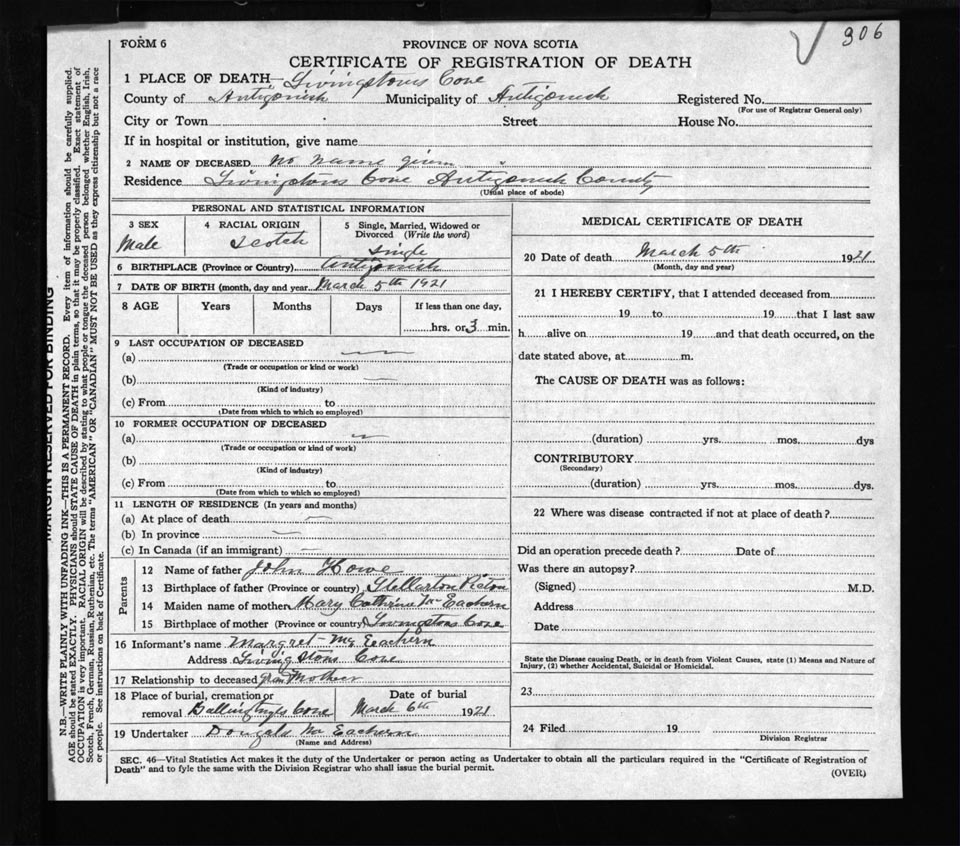 306
FORM 6
PROVINCE OF NOVA SCOTIA
CERTIFICATE OF REGISTRATION OF DEATH
1 PLACE OF DEATH—Livingstones Cove
County of Antigonish Municipality of Antigonish Registered No.
(For use of Registrar General only)
City or Town Street House No.
If in hospital or institution, give name
2 NAME OF DECEASED no name given
Residence Livingstons Cove Antigonish County
(Usual place of abode)
PERSONAL AND STATISTICAL INFORMATION
3 SEX 4 RACIAL ORIGIN 5 Single, Married, Widowed or
Divorced (Write the word)
Male Scotch single
6 BIRTHPLACE (Province or Country) Antigonish
7 DATE OF BIRTH (month, day and year March 5th 1921
8 AGE Years Months Days If less than one day,
hrs. or 3 min.
9 LAST OCCUPATION OF DECEASED
(a)
(Trade or occupation or kind or work)
(b)
(Kind of industry)
(c) From to
(Date from which to which so employed)
10 FORMER OCCUPATION OF DECEASED
(a)
(Trade or occupation or kind of work)
(b)
(Kind of industry)
(c) From to
(Date from which to which so employed)
11 LENGTH OF RESIDENCE (In years and months)
(a) At place of death
(b) In province
(c) In Canada (if an immigrant)
Parents
12 Name of father John Howe
13 Birthplace of father (Province or country) Stellarton Pictou
14 Maiden name of mother Mary Catherine Mc Eachern
15 Birthplace of mother (Province or country) Livingstons Cove
16 Informant's name Margret Mc Eachern
Address Livingstons Cove
17 Relationship to deceased gran Mother
18 Place of burial, cremation or Date of burial
removal Cove March 6th 1921
19 Undertaker Dougald Mc Eachern
(Name and Address)
MEDICAL CERTIFICATE OF DEATH
20 Date of death March 5th 1921
(Month, day and year)
21 I HEREBY CERTIFY, that I attended deceased from
19 to 19 that I last saw
h alive on 19 and that death occurred, on the
date stated above, at m.
The CAUSE OF DEATH was as follows:
(duration) yrs. mos. dys
CONTRIBUTORY
(Secondary)
(duration) yrs. mos. dys.
22 Where was disease contracted if not at place of death?
Did an operation precede death? Date of
Was there an autopsy?
(Signed) M.D.
Address
Date
State the Disease causing Death, or in death from Violent Causes, state (1) Means and Nature of
Injury, (2) whether Accidental, Suicidal or Homicidal.
23
24 Filed 19
Division Registrar
SEC. 46—Vital Statistics Act makes it the duty of the Undertaker or person acting as Undertaker to obtain all the particulars required in the "Certificate of Registration of
Death" and to fyle the same with the Division Registrar who shall issue the burial permit.
(OVER)
MARGIN RESERVED FOR BINDING
N.B.—WRITE PLAINLY WITH UNFADING INK—THIS IS A PERMANENT RECORD. Every item of information should be carefully supplied.
AGE should be stated EXACTLY. PHYSICIANS should STATE CAUSE OF DEATH in plain terms, so that it may be properly classified. Exact statement of
OCCUPATION is very important. RACIAL ORIGIN will be described by stating to what people or tongue the deceased person belonged whether English, Irish,
Scotch, French, German, Russian, Ruthenian, etc. The terms "AMERICAN" OR "CANADIAN" MUST NOT BE USED as they express citizenship but not a race
or people. See instructions on back of Certificate.